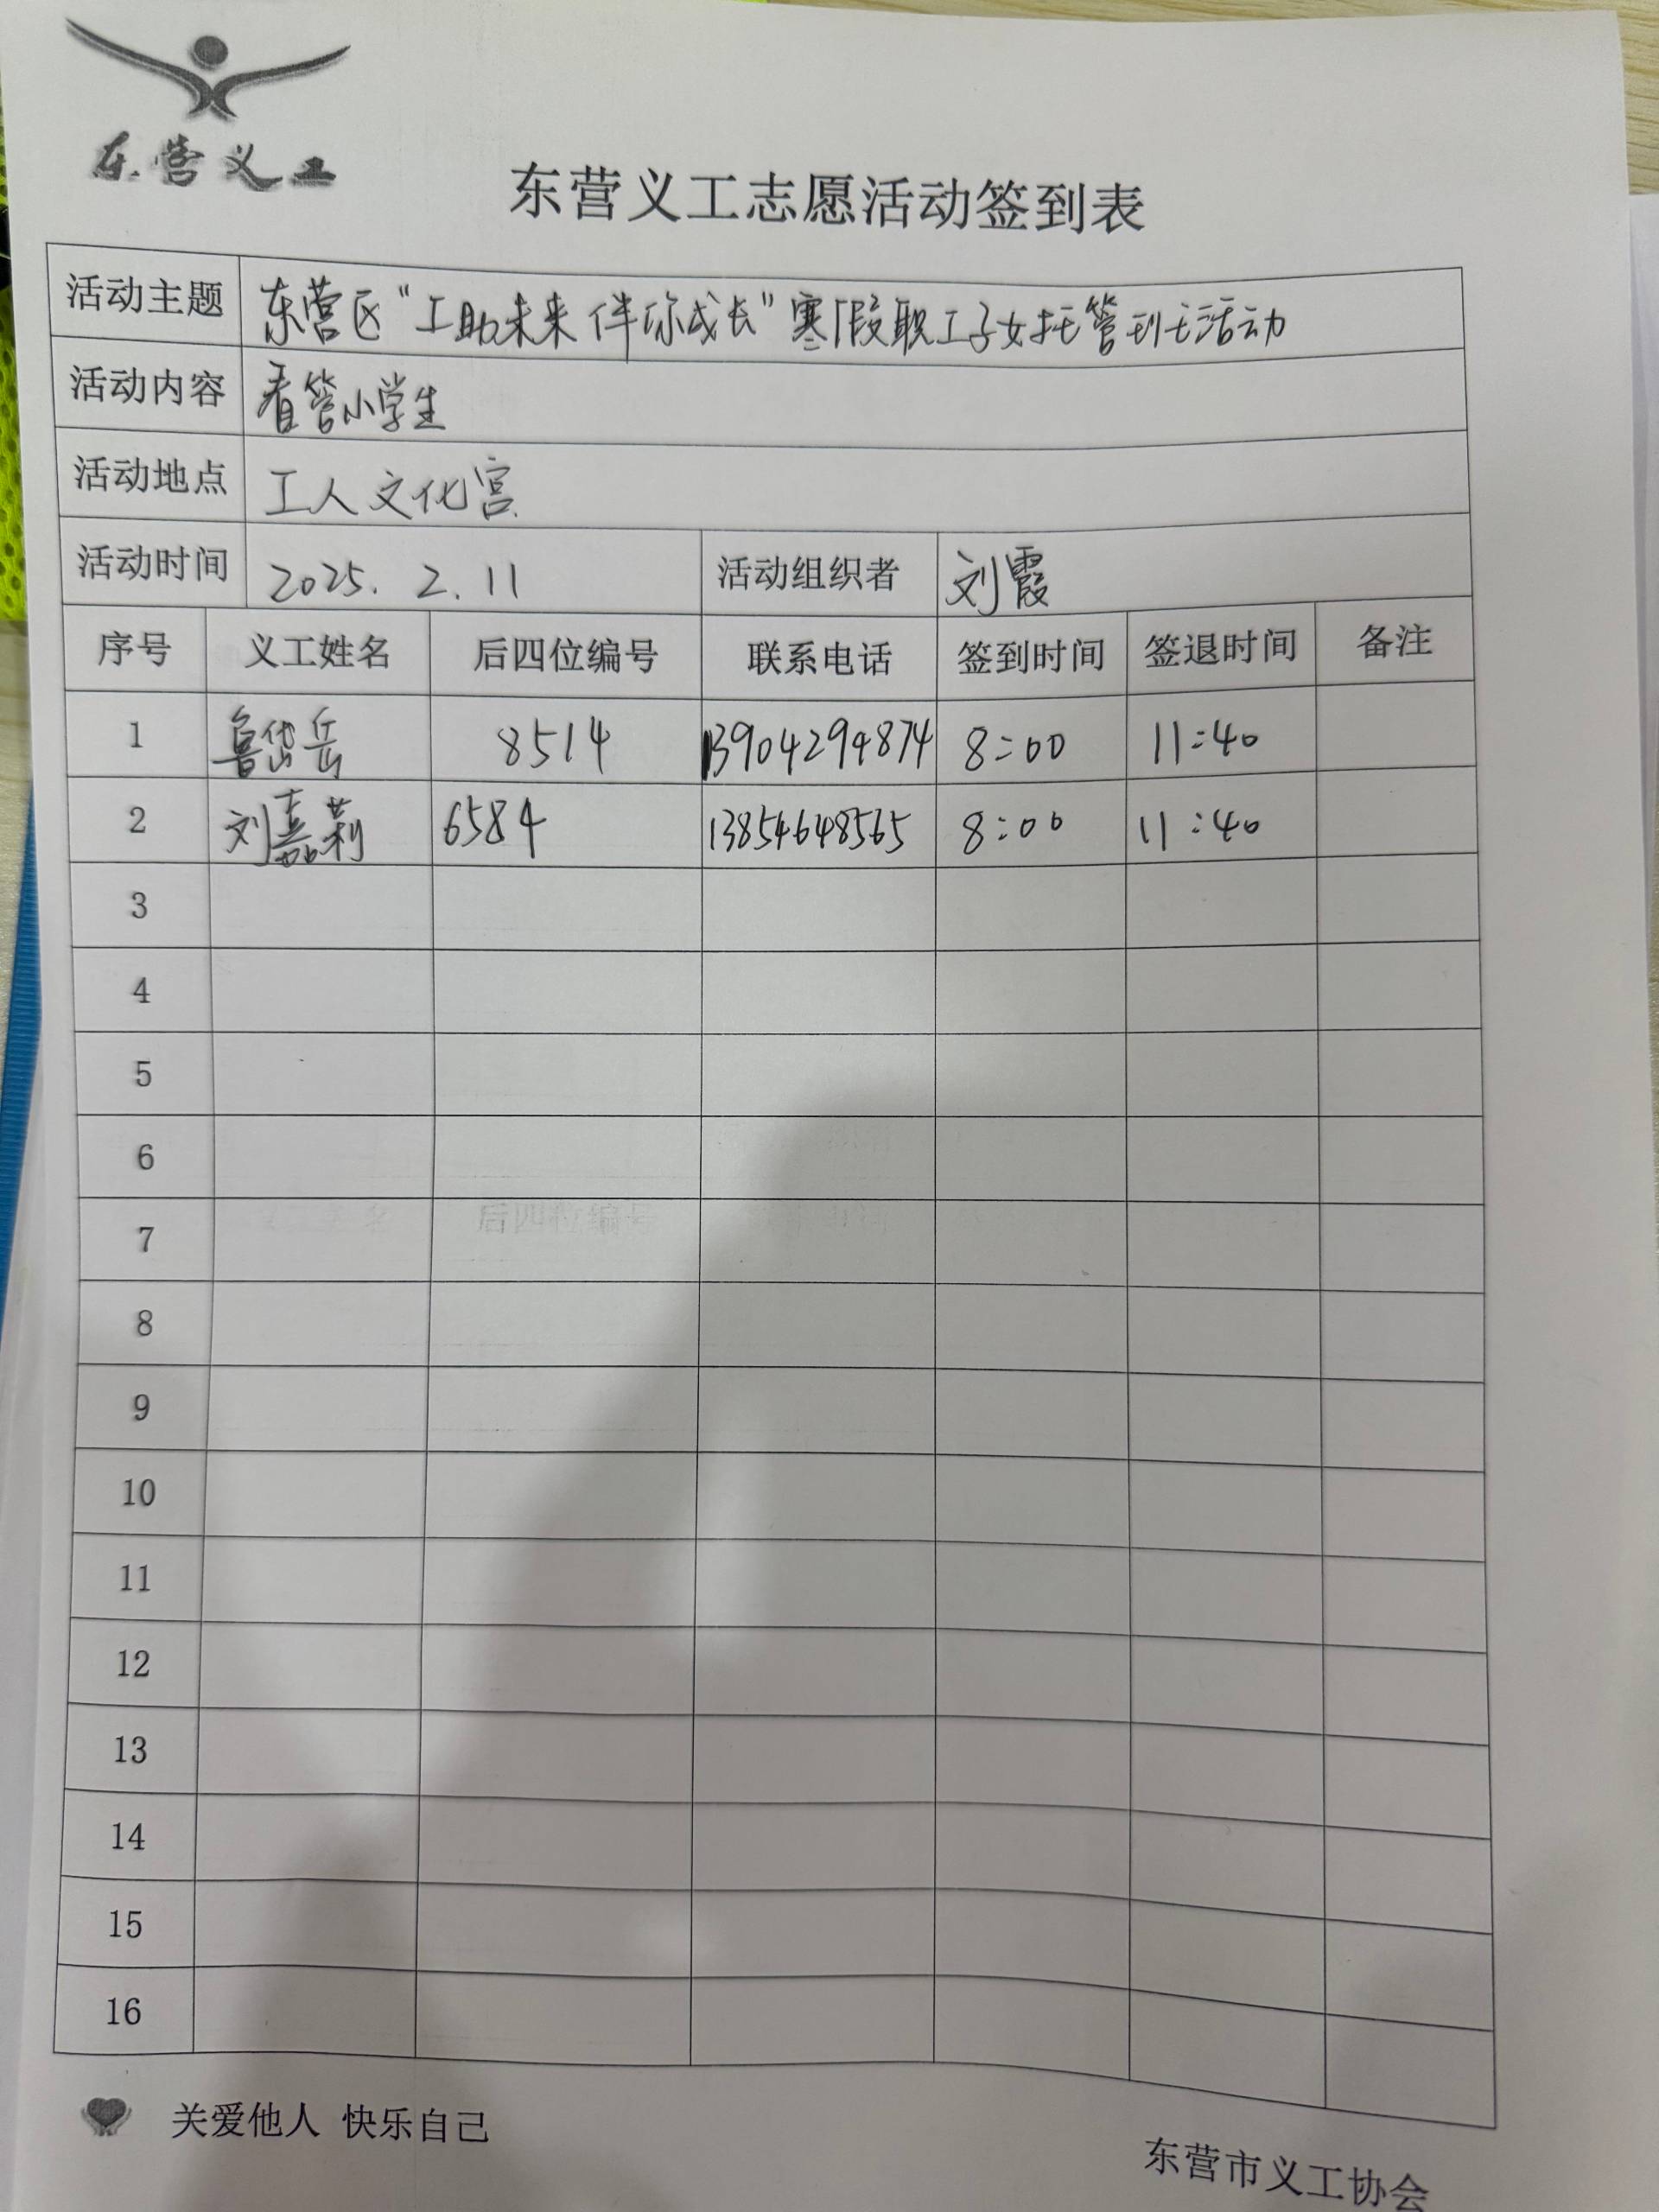 东营义工
东营义工志愿活动签到表
活动主题 东营区“工助未来 伴你成长”寒假职工子女托管到七活动
活动内容 看管小学生
活动地点 工人文化宫
活动时间 2025.2.11 活动组织者 刘霞
序号 义工姓名 后四位编号 联系电话 签到时间 签退时间 备注
1 鲁岱岳 8514 13904294874 8:00 11:40
2 刘嘉莉 6584 13854648565 8:00 11:40
3
4
5
6
7
后四位编号
8
9
10
11
12
13
14
15
16
关爱他人 快乐自己
东营市义工协会